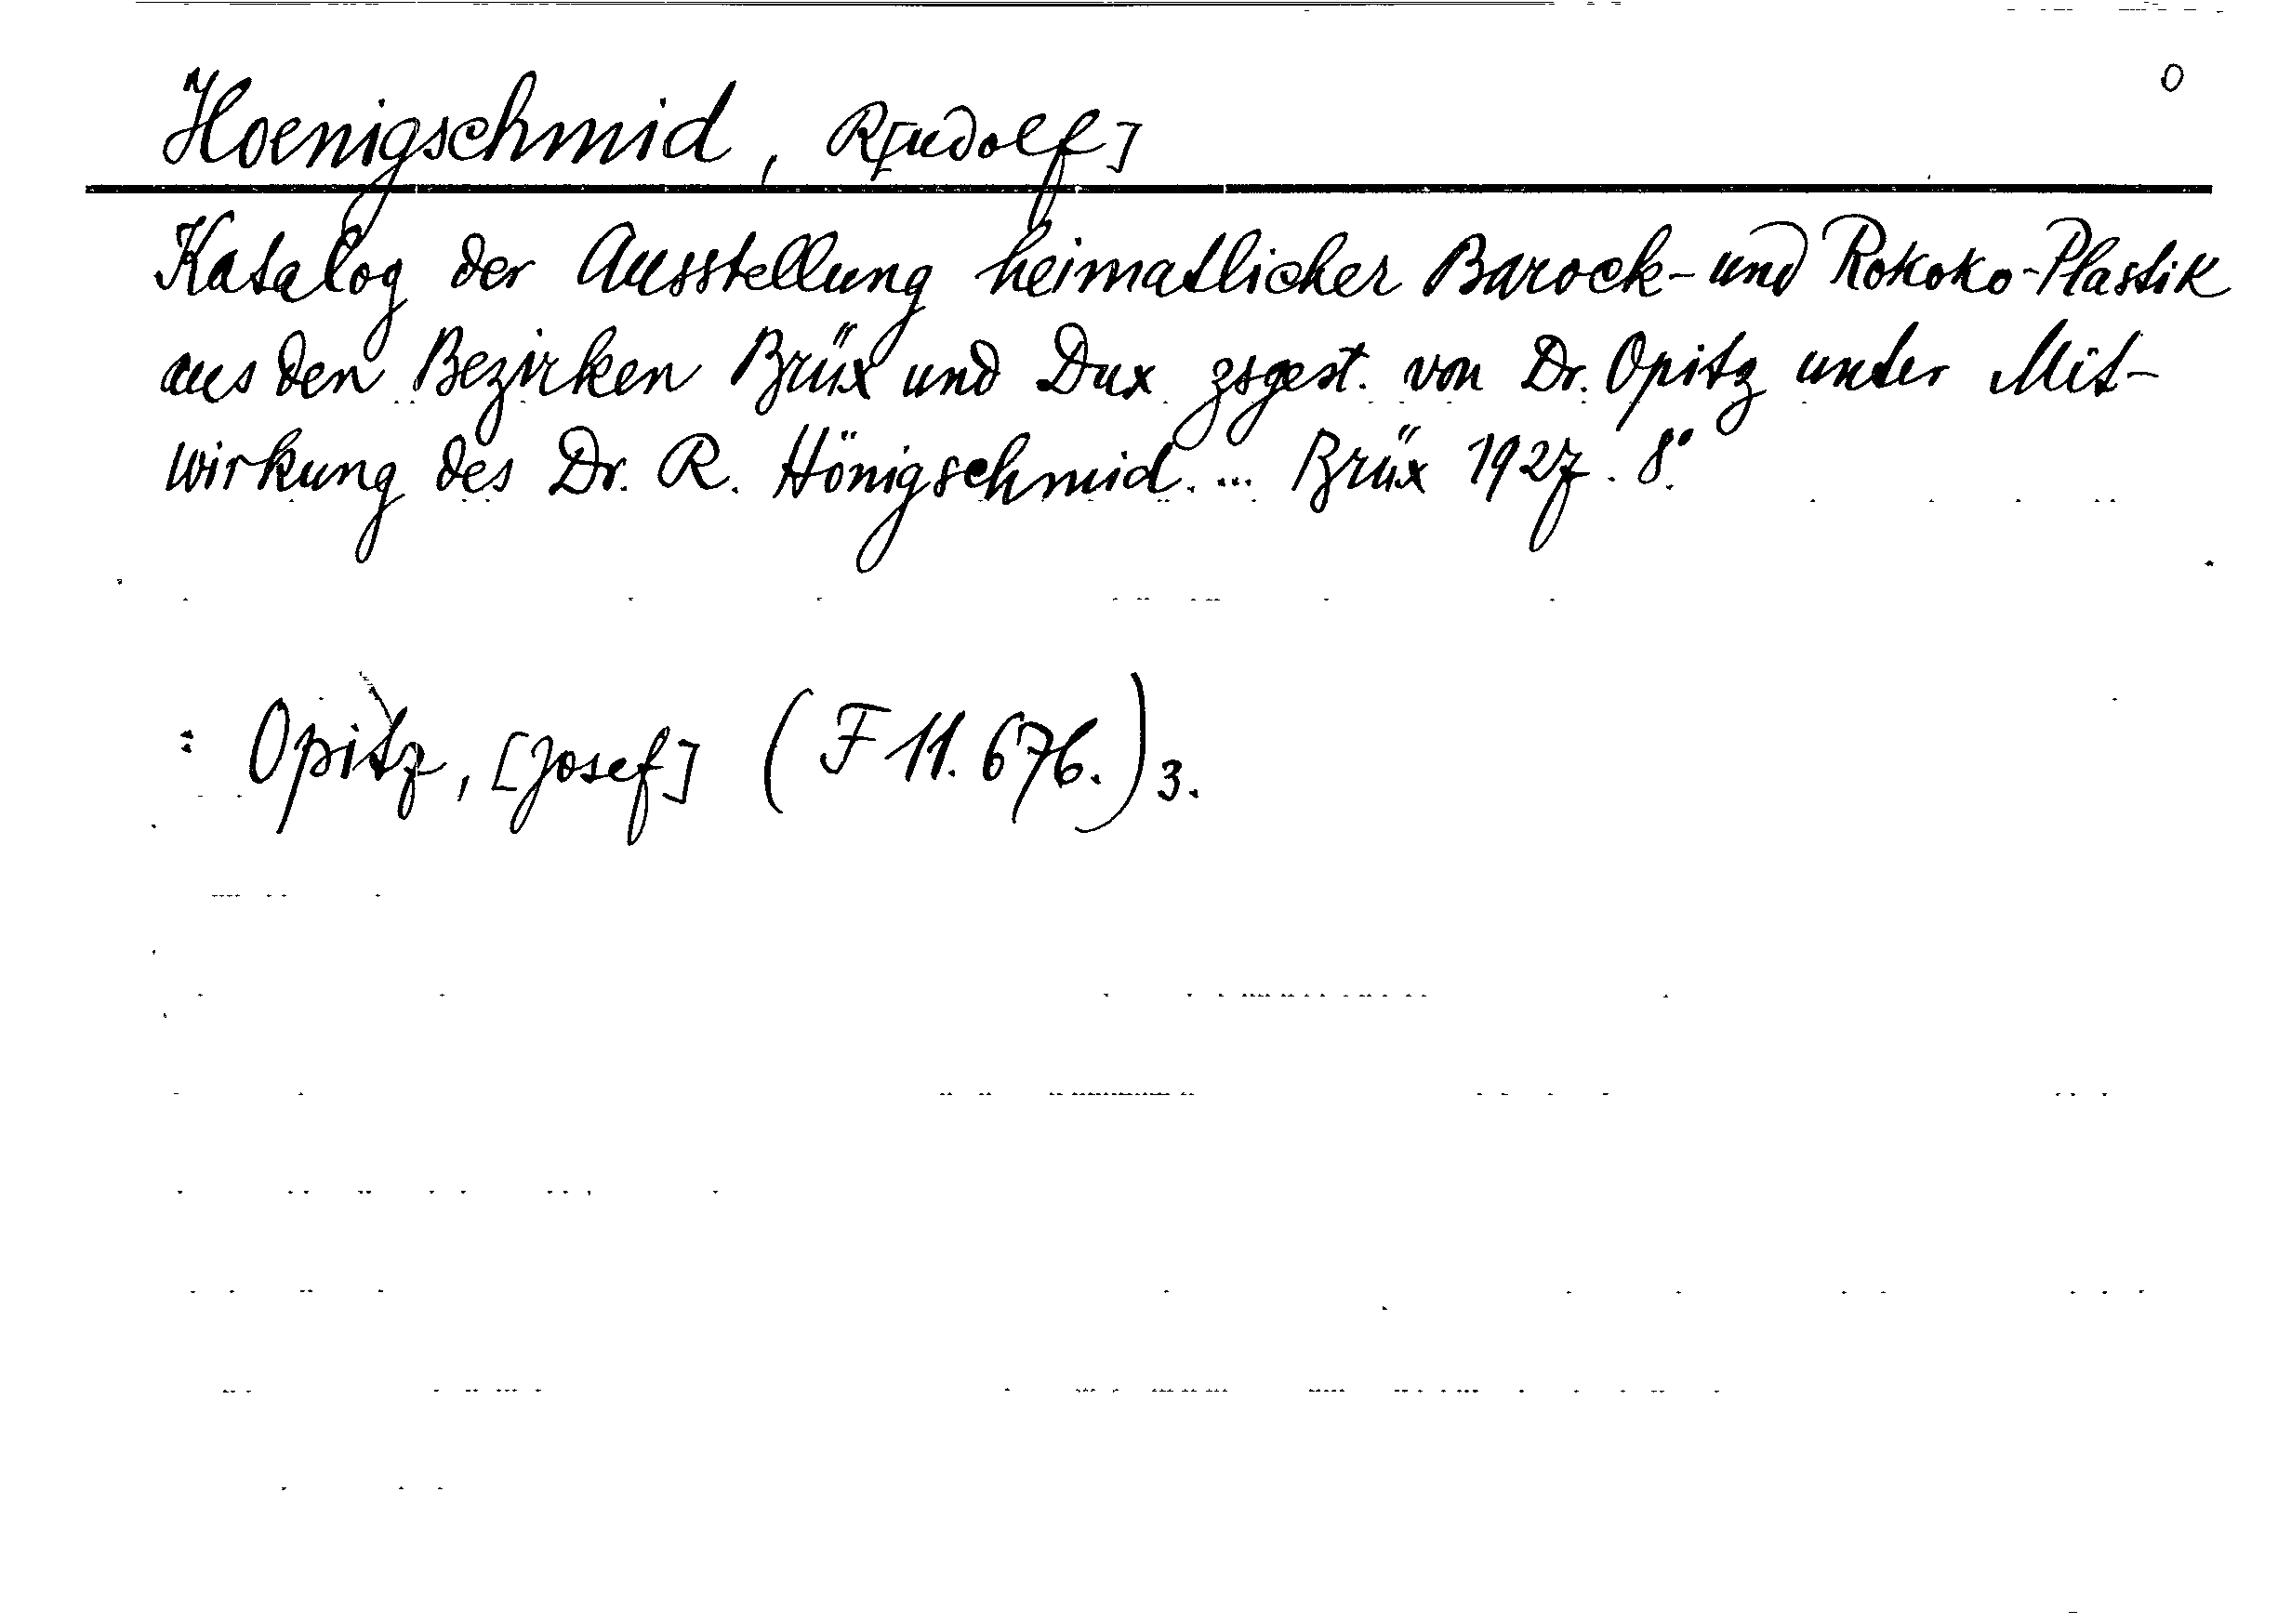 0
Hoenigschmid, R[udolf]
Katalog der Ausstellung heimatlicher Barock- und Rokoko-Plastik
aus den Bezirken Brüx und Dux zsgest. von Dr. Opitz unter Mit-
wirkung des Dr. R. Hönigschmid. ... Brüx 1927. 8°.
: Opitz, [Josef] (F 11.676.) 3.